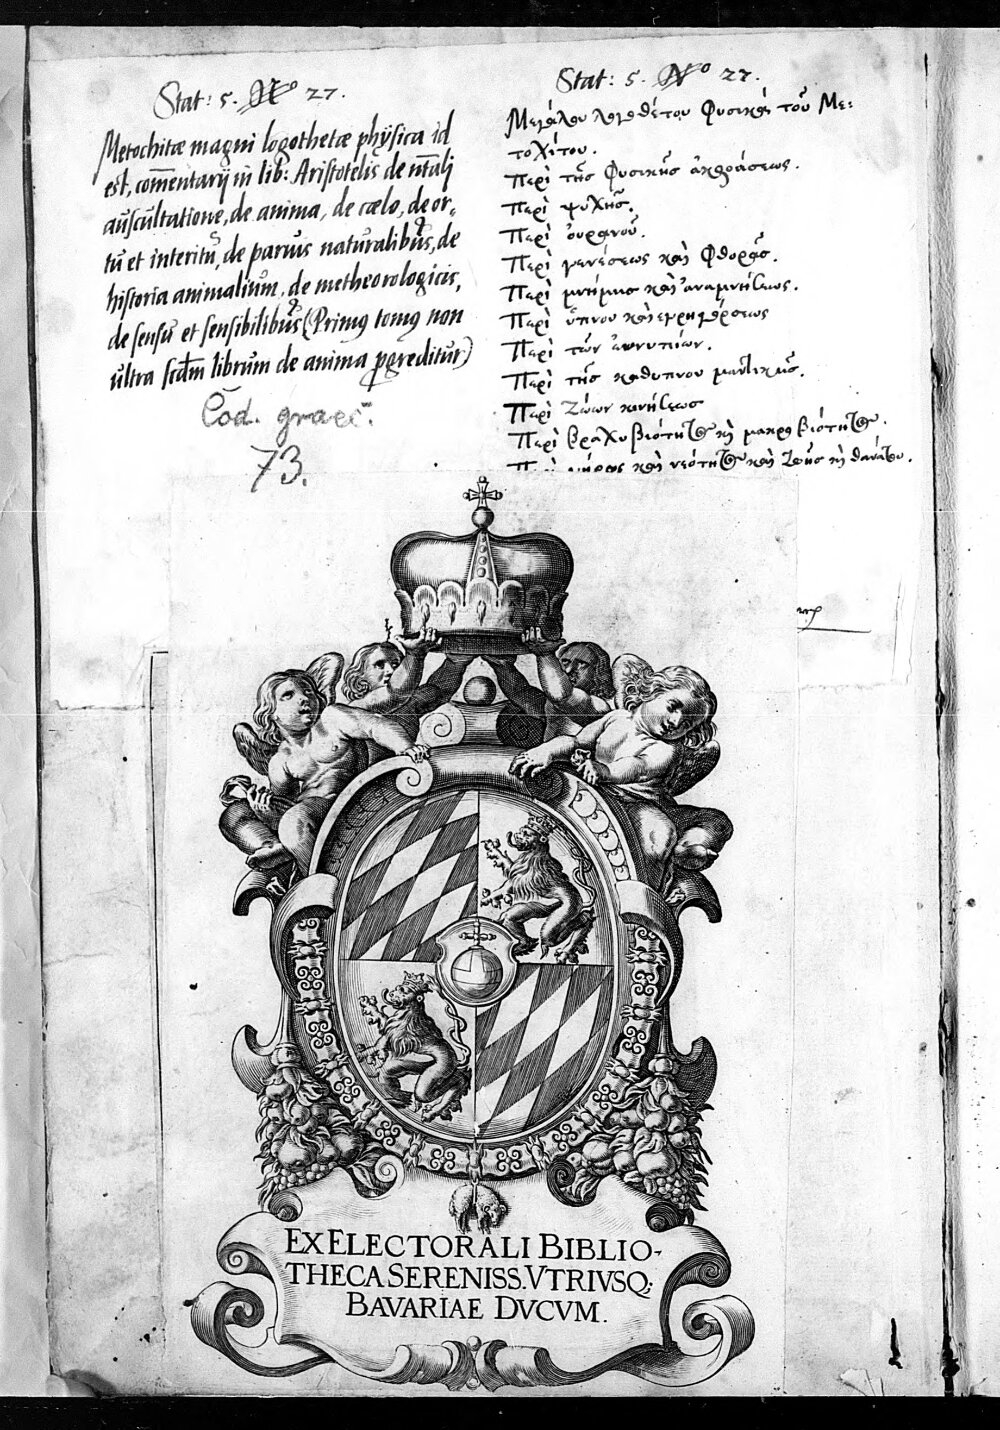 Stat: 5. No 27.
Metochitæ magni logothetæ physica id
est, com̄entarij in lib: Aristotelis de nr̄ali
auscultatione, de anima, de cælo, de or,
tu et interitu, de paruis naturalibus, de
historia animalium, de metheorologicis,
de sensu et sensibilibus (Primus tomus non
ultra scd̄m librum de anima progreditur)
Cod. graec.
73.
Stat: 5. No 27.
Μεγάλου λογοθέτου Φυσικὰ τοῦ Με:
τοχίτου.
Περὶ τῆς Φυσικῆς ἀκροάσεως.
Περὶ ψυχῆς.
Περὶ οὐρανοῦ.
Περὶ γενέσεως καὶ Φθορᾶς.
Περὶ μνήμης καὶ ἀναμνήσεως.
Περὶ ὕπνου καὶ ἐγρηγόρσεως
Περὶ τῶν ἐνυπνίων.
Περὶ τῆς καθυπνου μαντικῆς.
Περὶ ζώων κινήσεως
Περὶ βραχυβιότητος κὴ μακροβιότητος.
Περὶ γήρως καὶ νεότητος καὶ ζωῆς κὴ θανάτου.
EX ELECTORALI BIBLIO-
THECA SERENISS. VTRIVSQ;
BAVARIAE DVCVM.